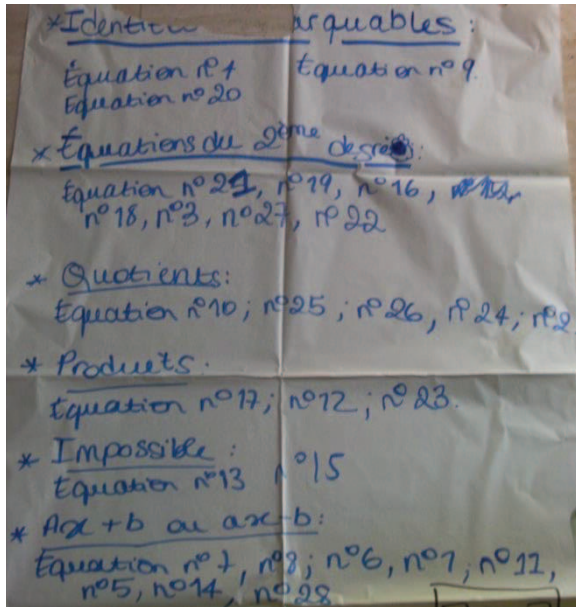 * Identi arquables :
Équation n°4 Équation n°9
Equation n°20
* Équations du 2ème degrés :
Equation n°21, n°19, n°16,
n°18, n°3, n°27, n°22
* Quotients :
Equation n°10 ; n°25 ; n°26, n°24 ; n°2
* Produits.
Equation n°17 ; n°12 ; n°23.
* Impossible :
Equation n°13 n°15
* Ax + b ou ax-b :
Equation n°7, n°8 ; n°6, n°1 ; n°11,
n°5, n°14, n°28